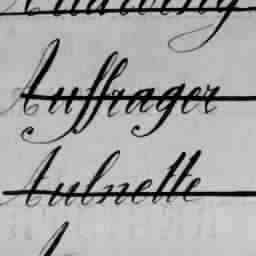 Auffrager
Aulnette